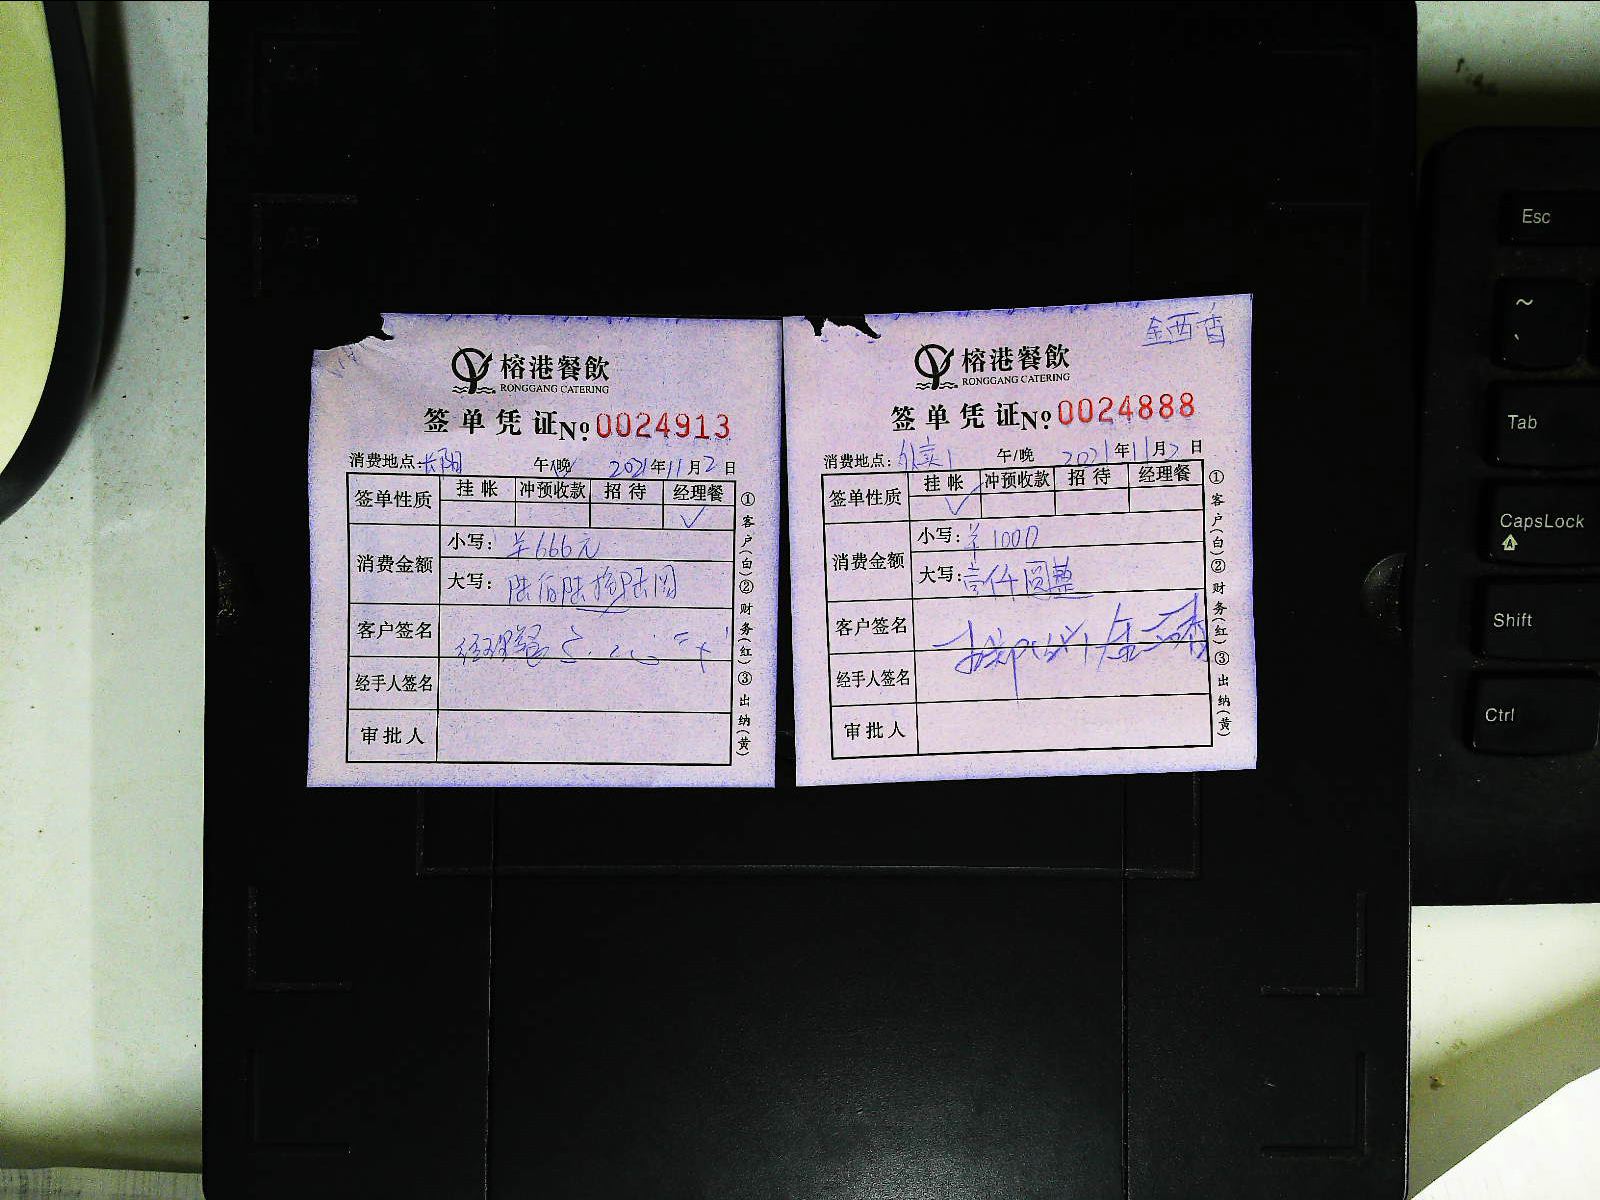 榕港餐飲
RONGGANG CATERING
签单凭证 № 0024913
消费地点: 长阳 午/晚 2021年11月2日
签单性质 挂帐 冲预收款 招待 经理餐
✓
消费金额 小写: ¥666元
大写: 陆佰陆拾陆圆
客户签名 经理餐
经手人签名
审批人
①客户(白)②财务(红)③出纳(黄)
金西杏
榕港餐飲
RONGGANG CATERING
签单凭证 № 0024888
消费地点: 外卖1 午/晚 2021年11月2日
签单性质 挂帐 冲预收款 招待 经理餐
✓
消费金额 小写: ¥1000
大写: 壹仟圆整
客户签名
经手人签名
审批人
①客户(白)②财务(红)③出纳(黄)
A5
Esc
~
Tab
CapsLock
A
Shift
Ctrl